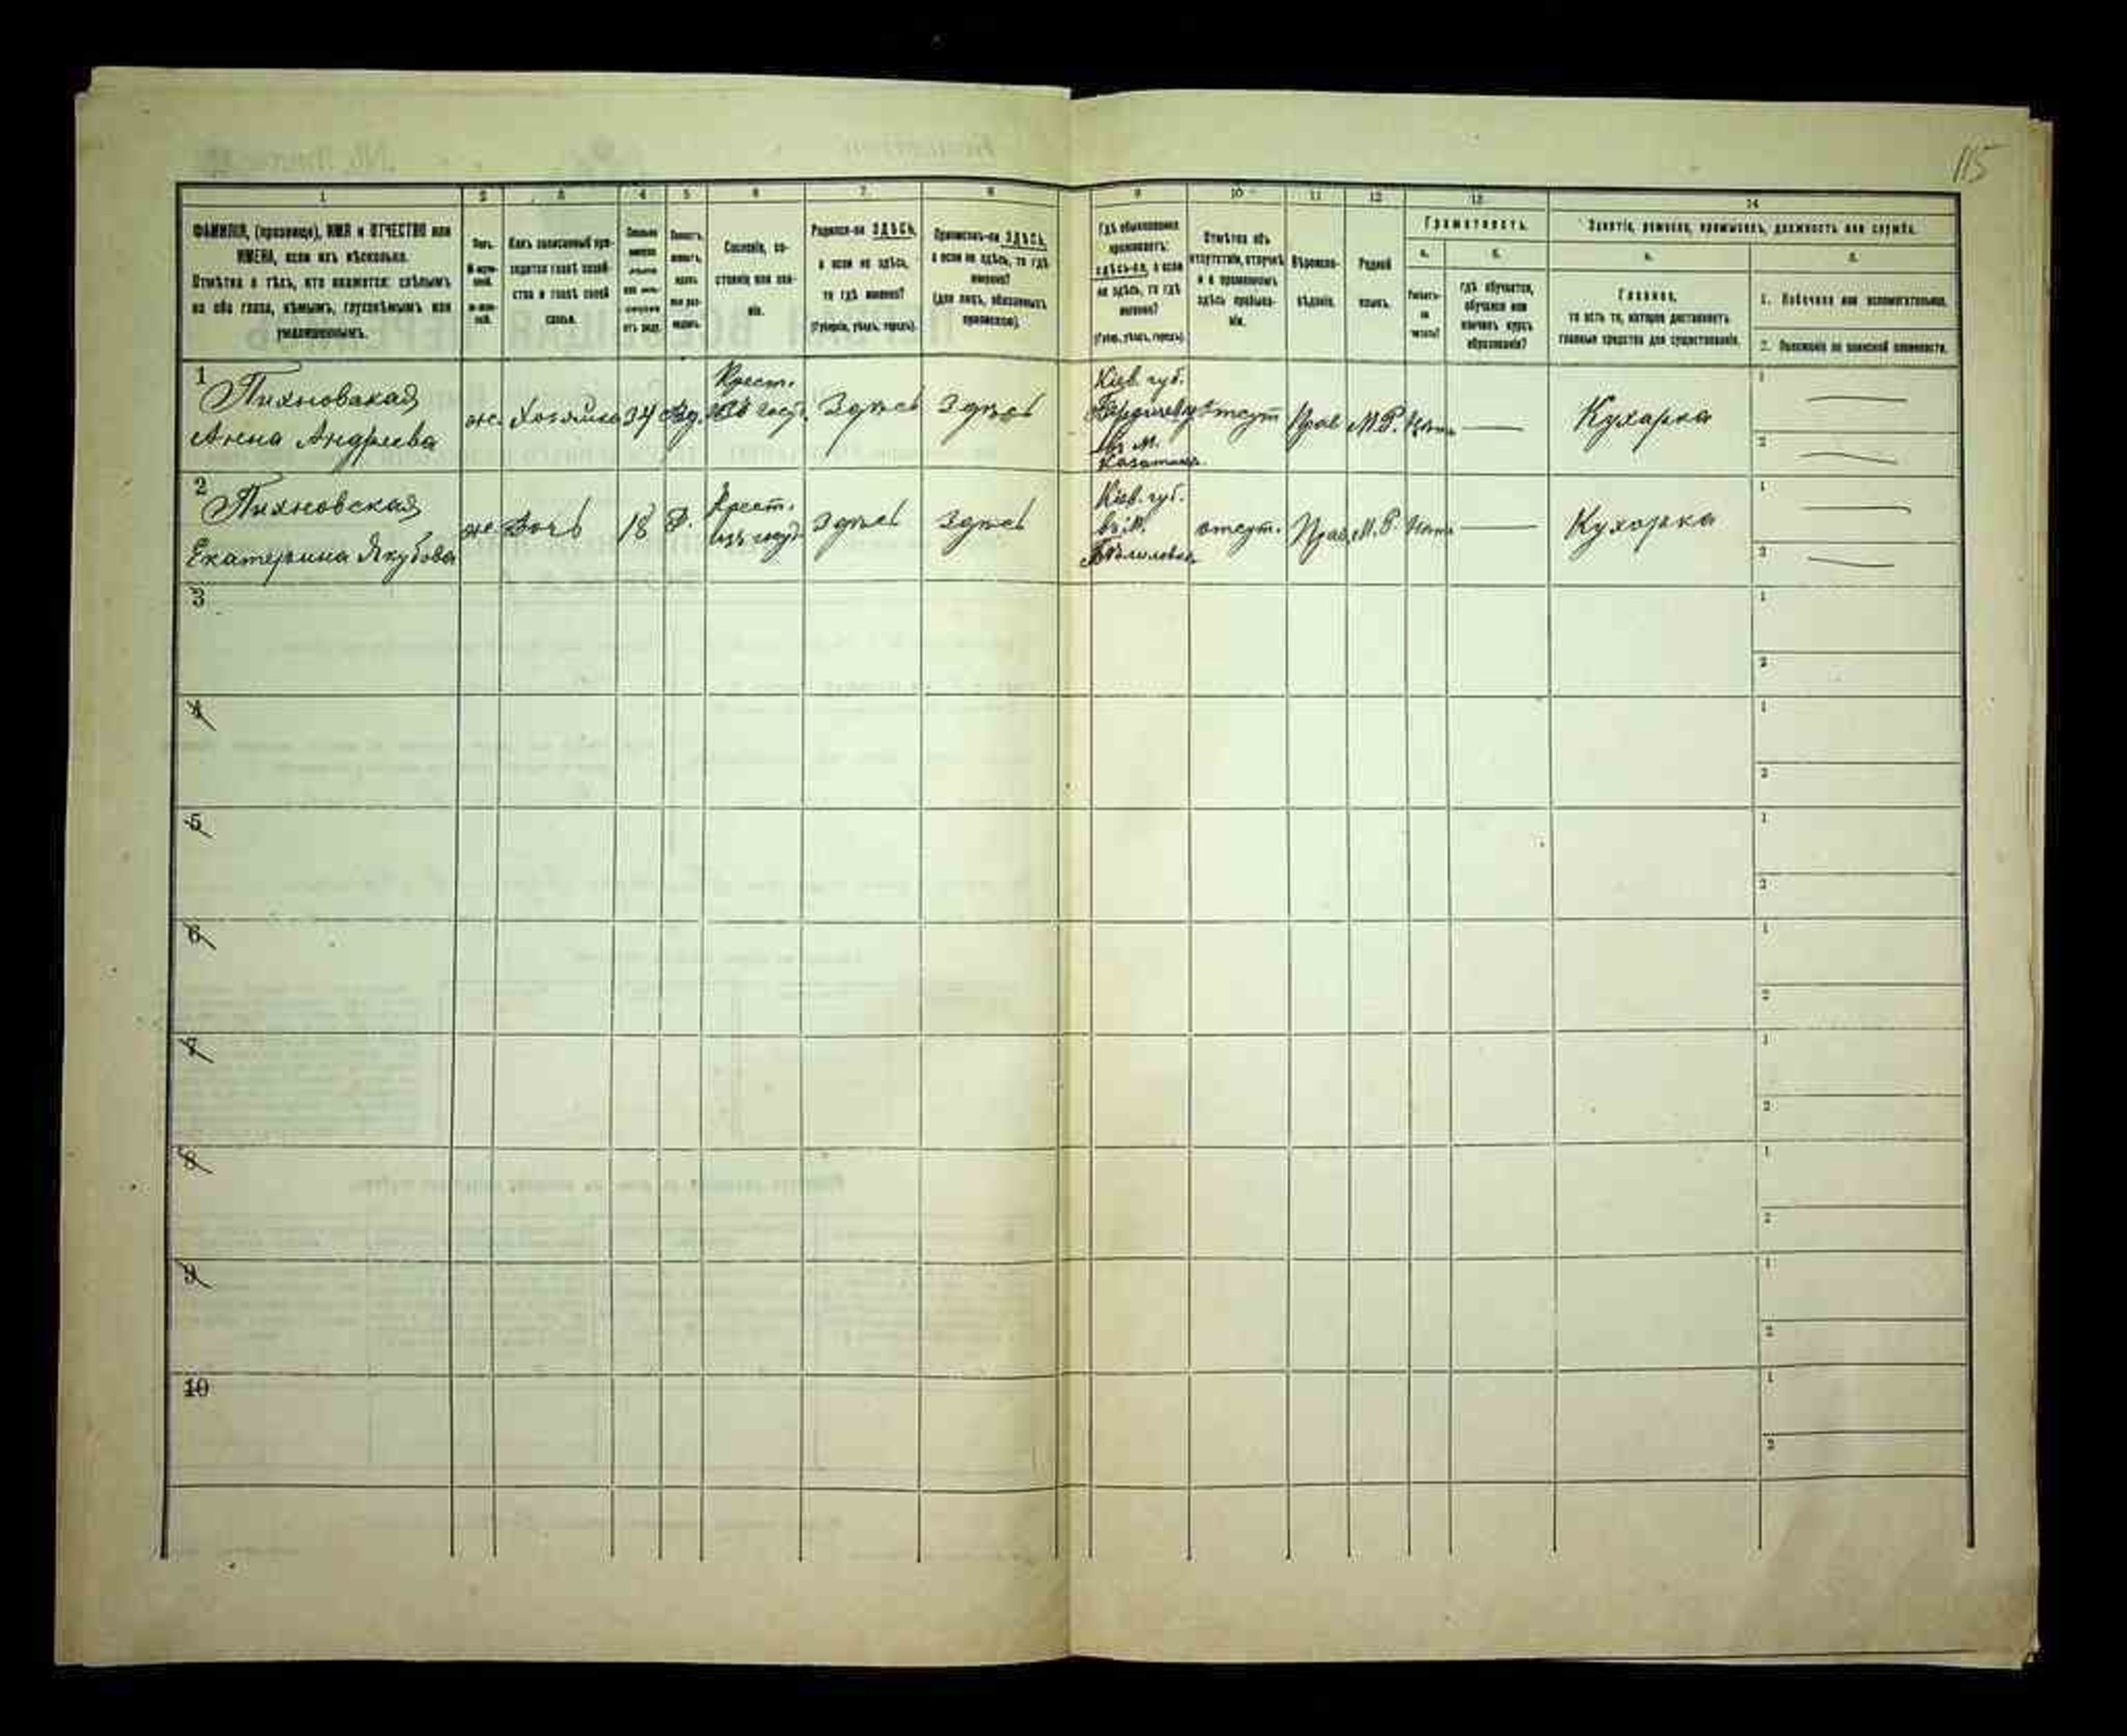 115
1 2 3 4 5 6 7 8 9 10 11 12 13 14
ФАМИЛІЯ, (прозвище), ИМЯ и ОТЧЕСТВО или
ИМЕНА, если ихъ нѣсколько.
Отмѣтка о тѣхъ, кто окажется: слѣпымъ
на оба глаза, нѣмымъ, глухонѣмымъ или
умалишеннымъ.
Полъ.
Какъ записанный при-
ходится главѣ хозяй-
ства и главѣ своей
семьи.
Сословіе, со-
стояніе или зва-
ніе.
Родился-ли ЗДѢСЬ,
а если не здѣсь,
то гдѣ именно?
(Губернія, уѣздъ, городъ).
Приписанъ-ли ЗДѢСЬ,
а если не здѣсь, то гдѣ
именно?
(для лицъ, обязанныхъ
припискою).
Гдѣ обыкновенно
проживаетъ:
здѣсь-ли, а если
не здѣсь, то гдѣ
именно?
(Губер., уѣздъ, городъ).
Отмѣтка объ
отсутствіи, отлучкѣ
и о временномъ
здѣсь пребыва-
ніи.
Вѣроиспо-
вѣданіе.
Родной
языкъ.
Грамотность.
а. б.
Умѣетъ-
ли
читать?
гдѣ обучается,
обучался или
кончилъ курсъ
образованія?
Занятіе, ремесло, промыселъ, должность или служба.
а. б.
Главное,
то есть то, которое доставляетъ
главныя средства для существованія.
1. Побочное или вспомогательное.
2. Положеніе по воинской повинности.
1
Пихновская
Анна Андреева
ж. Хозяйка 34 Вд.
Крест.
Здѣсь Здѣсь
Кіев. губ.
въ м.
Отсут Прав М.Р. Нѣтъ — Кухарка
1 —
2 —
2
Пихновская
Екатерина Якубова
ж. Дочь 18 Д.
Крест.
Здѣсь Здѣсь
Кіев. губ.
въ м.
отсут. Прав. М.Р Нѣтъ — Кухорка
1 —
2 —
3 1
2
4 1
2
5 1
2
6 1
2
7 1
2
8 1
2
9 1
2
10 1
2